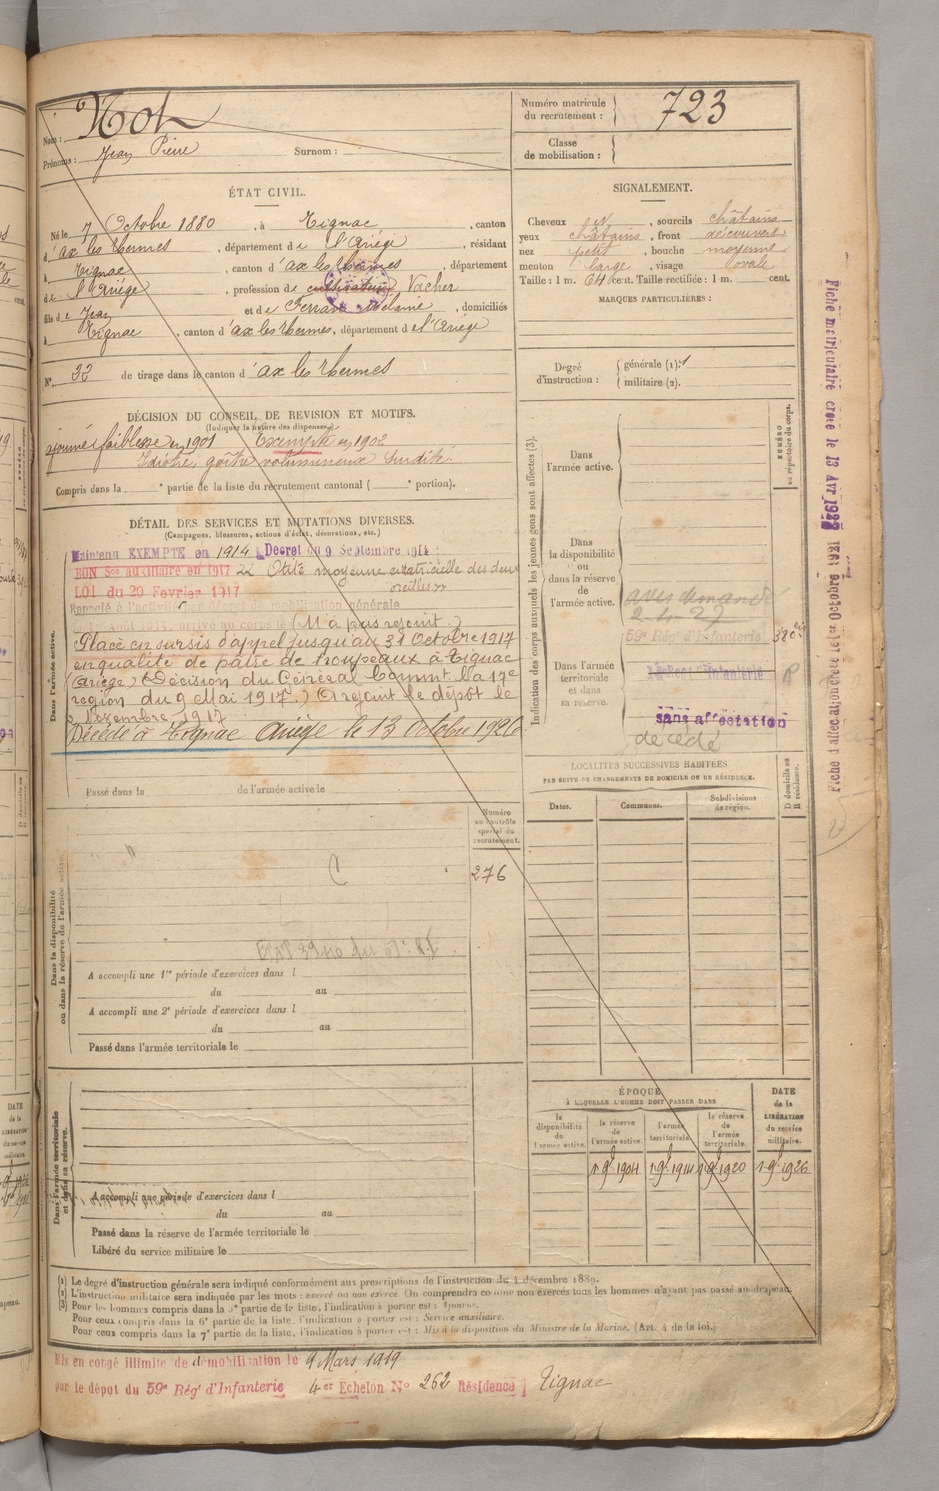 Nom :
Prénoms : Jean Pierre Surnom :
Numéro matricule du recrutement : 723
Classe de mobilisation :
ÉTAT CIVIL.
Né le 7 Octobre 1880, à Tignac, canton
d'ax les thermes, département de l'Ariège, résidant
à Tignac, canton d'ax les thermes, département
de l'Ariège, profession de cultivateur Vacher
fils de Jean et de Ferran Mélanie, domiciliés
à Tignac, canton d'ax les thermes, département de l'Ariège
N° 32 de tirage dans le canton d'ax les thermes
SIGNALEMENT.
Cheveux N, sourcils châtains
yeux châtains, front découvert
nez petit, bouche moyenne
menton large, visage ovale
Taille : 1 m. 64 cent. Taille rectifiée : 1 m. cent.
MARQUES PARTICULIÈRES :
Degré d'instruction : générale (1). 1
militaire (2).
DÉCISION DU CONSEIL DE REVISION ET MOTIFS.
(Indiquer la nature des dispenses.)
ajourné faiblesse en 1901 Exempté en 1902
Idiotie, goître volumineux Surdité.
Compris dans la e partie de la liste du recrutement cantonal ( e portion).
DÉTAIL DES SERVICES ET MUTATIONS DIVERSES.
(Campagnes, blessures, actions d'éclat, décorations, etc.)
Maintenu EXEMPTÉ en 1914 Décret du 9 Septembre 1914 :
BON Sce auxiliaire en 1917 Otite moyenne cicatricielle des deux
LOI du 20 Février 1917 oreilles »
Rappelé à l'activité par décret de mobilisation générale
arrivé au corps le (N'a pas rejoint.)
Placé en sursis d'appel jusqu'au 31 Octobre 1917
en qualité de pâtre de troupeaux à Tignac
(Ariège) (Décision du Général Commt la 17e
région du 9 Mai 1917.) A rejoint le dépôt le
Novembre 1917
Décédé à Tignac Ariège le 13 Octobre 1926
Dans l'armée active.
Passé dans la de l'armée active le
Indication des corps auxquels les jeunes gens sont affectés (3).
NUMÉRO au répertoire du corps.
Dans l'armée active.
Dans la disponibilité ou dans la réserve de l'armée active.
avis demandé
2-4-27
59e Rég d'Infanterie
Dans l'armée territoriale et dans sa réserve.
sans affectation
décédé
LOCALITÉS SUCCESSIVES HABITÉES
PAR SUITE DE CHANGEMENTS DE DOMICILE OU DE RÉSIDENCE.
Dates. Communes. Subdivisions de région. D domicile ou R résidence.
Numéro au contrôle spécial du recrutement.
276
Dans la disponibilité ou dans la réserve de l'armée active.
A accompli une 1re période d'exercices dans l
du au
A accompli une 2e période d'exercices dans l
du au
Passé dans l'armée territoriale le
Dans l'armée territoriale et dans sa réserve.
A accompli une période d'exercices dans l
du au
Passé dans la réserve de l'armée territoriale le
Libéré du service militaire le
ÉPOQUE
À LAQUELLE L'HOMME DOIT PASSER DANS
DATE de la LIBÉRATION du service militaire.
la disponibilité de l'armée active. la réserve de l'armée active. l'armée territoriale. la réserve de l'armée territoriale.
1 9bre 1904 1 9bre 1914 1 9bre 1920 1 9bre 1926
(1) Le degré d'instruction générale sera indiqué conformément aux prescriptions de l'instruction du 4 décembre 1889.
(2) L'instruction militaire sera indiquée par les mots : exercé ou non exercé. On comprendra comme non exercés tous les hommes n'ayant pas passé au drapeau.
(3) Pour les hommes compris dans la 5e partie de la liste, l'indication à porter est : Ajourné.
Pour ceux compris dans la 6e partie de la liste, l'indication à porter est : Service auxiliaire.
Pour ceux compris dans la 7e partie de la liste, l'indication à porter est : Mis à la disposition du Ministre de la Marine. (Art. 4 de la loi.)
Mis en congé illimité de démobilisation le 9 Mars 1919
par le dépôt du 59e Rég d'Infanterie 4er Echelon No 262 Résidence ] Tignac
Fiche matriculaire créée le 13 Avr 1927